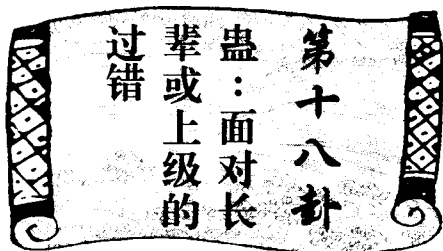 第十八卦
蛊：面对长
辈或上级的
过错